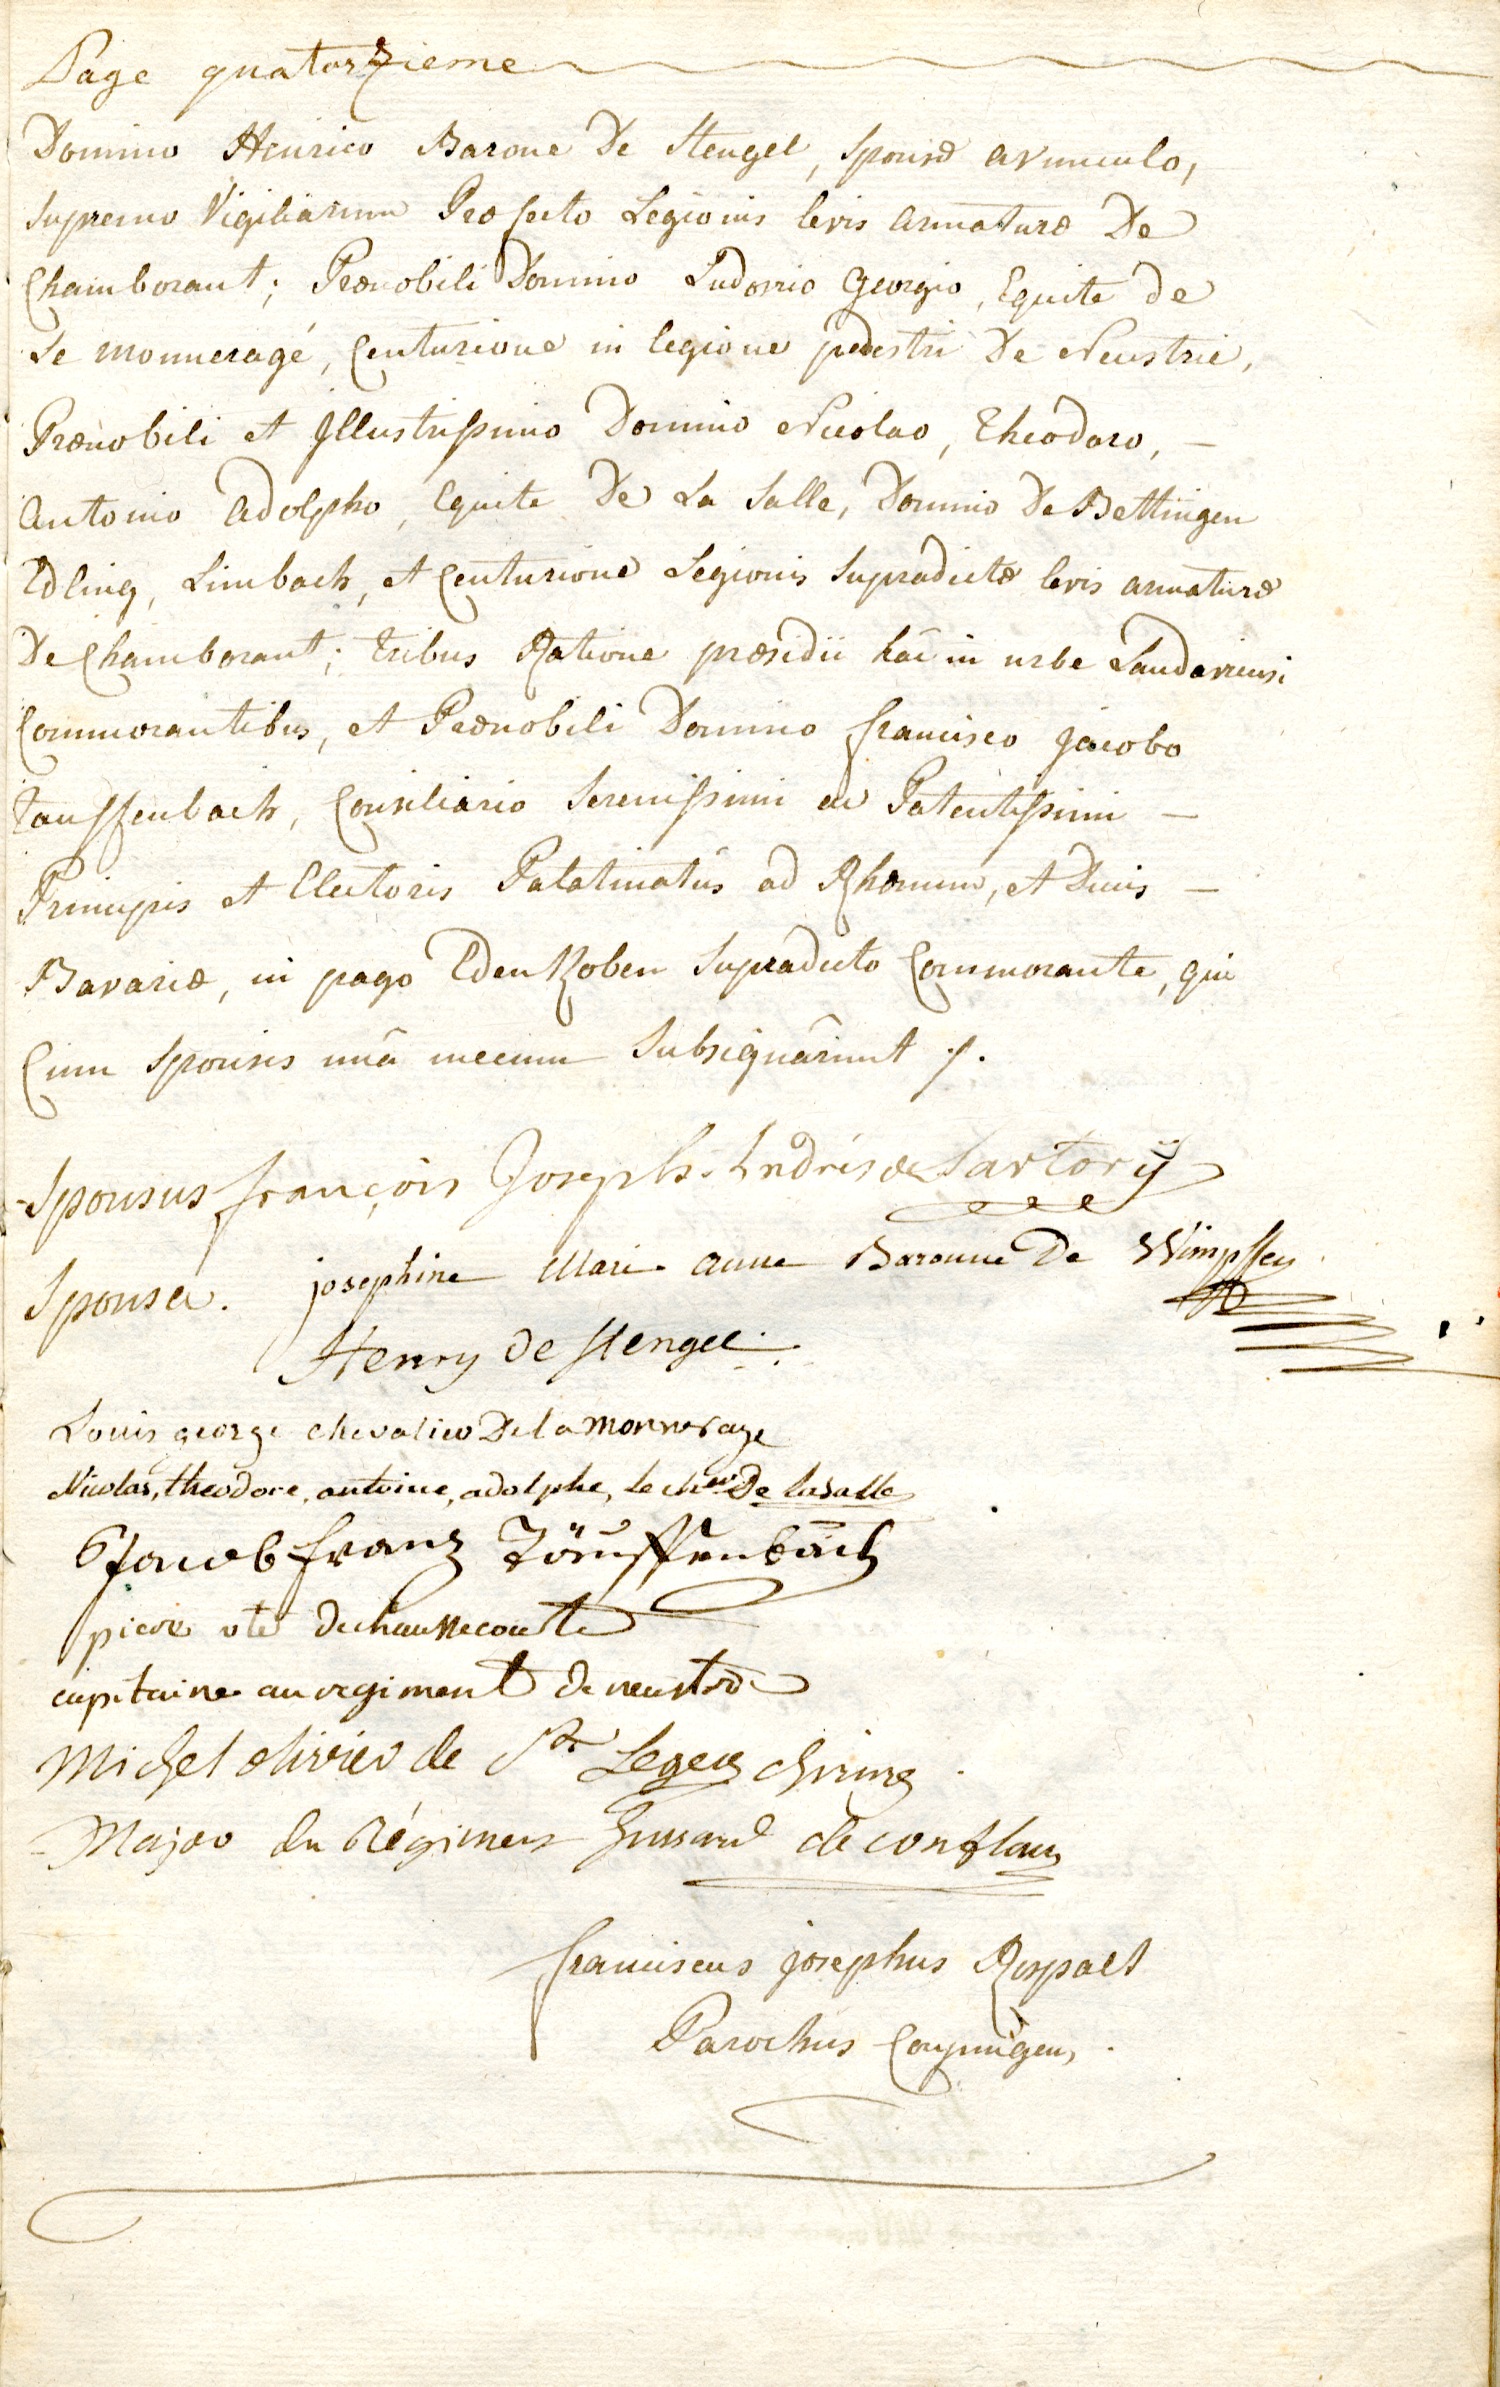 Page quatorzieme
Domino Henrico Barone De Stengel, Sponsæ avunculo,
Supremo Vigiliarum Præfecto Legionis levis armaturæ De
Chamborant; Prænobili Domino Ludovico Georgio, Equite de
Le monneragé, Centurione in legione pedestri De Neustrie,
Prænobili et Illustrissimo Domino Nicolao, Theodoro, —
Antonio Adolpho, Equite De La Salle, Domino De Bettingen
Edling, Limbach, et Centurione Legionis Supradictæ levis armaturæ
De Chamborant; tribus Ratione præsidii hâc in urbe Landaviensi
Commorantibus, et Prænobili Domino francisco jacobo
Tauffenbach, Consiliario Serenissimi ac Potentissimi —
Principis et Electoris Palatinatûs ad Rhenum, et Ducis —
Bavariæ, in pago Edenkoben Supradicto Commorante, qui
Cum Sponsis unâ mecum Subsignârunt
Sponsus françois Joseph Andrés de Sartory
Sponsa. josephine Marie anne Baronne De Wimpffen
Henry de Stengel
Louis george chevalier De la monnerage
Nicolas, theodore, antoine, adolphe, le cher De lasalle
Jacob franz Täuffenbach
dechaussecourte
capitaine au regiment de neustrie
Michel olivier de St Leger
Major du Régiment hussard de conflans
franciscus josephus Rospatt
Parochus